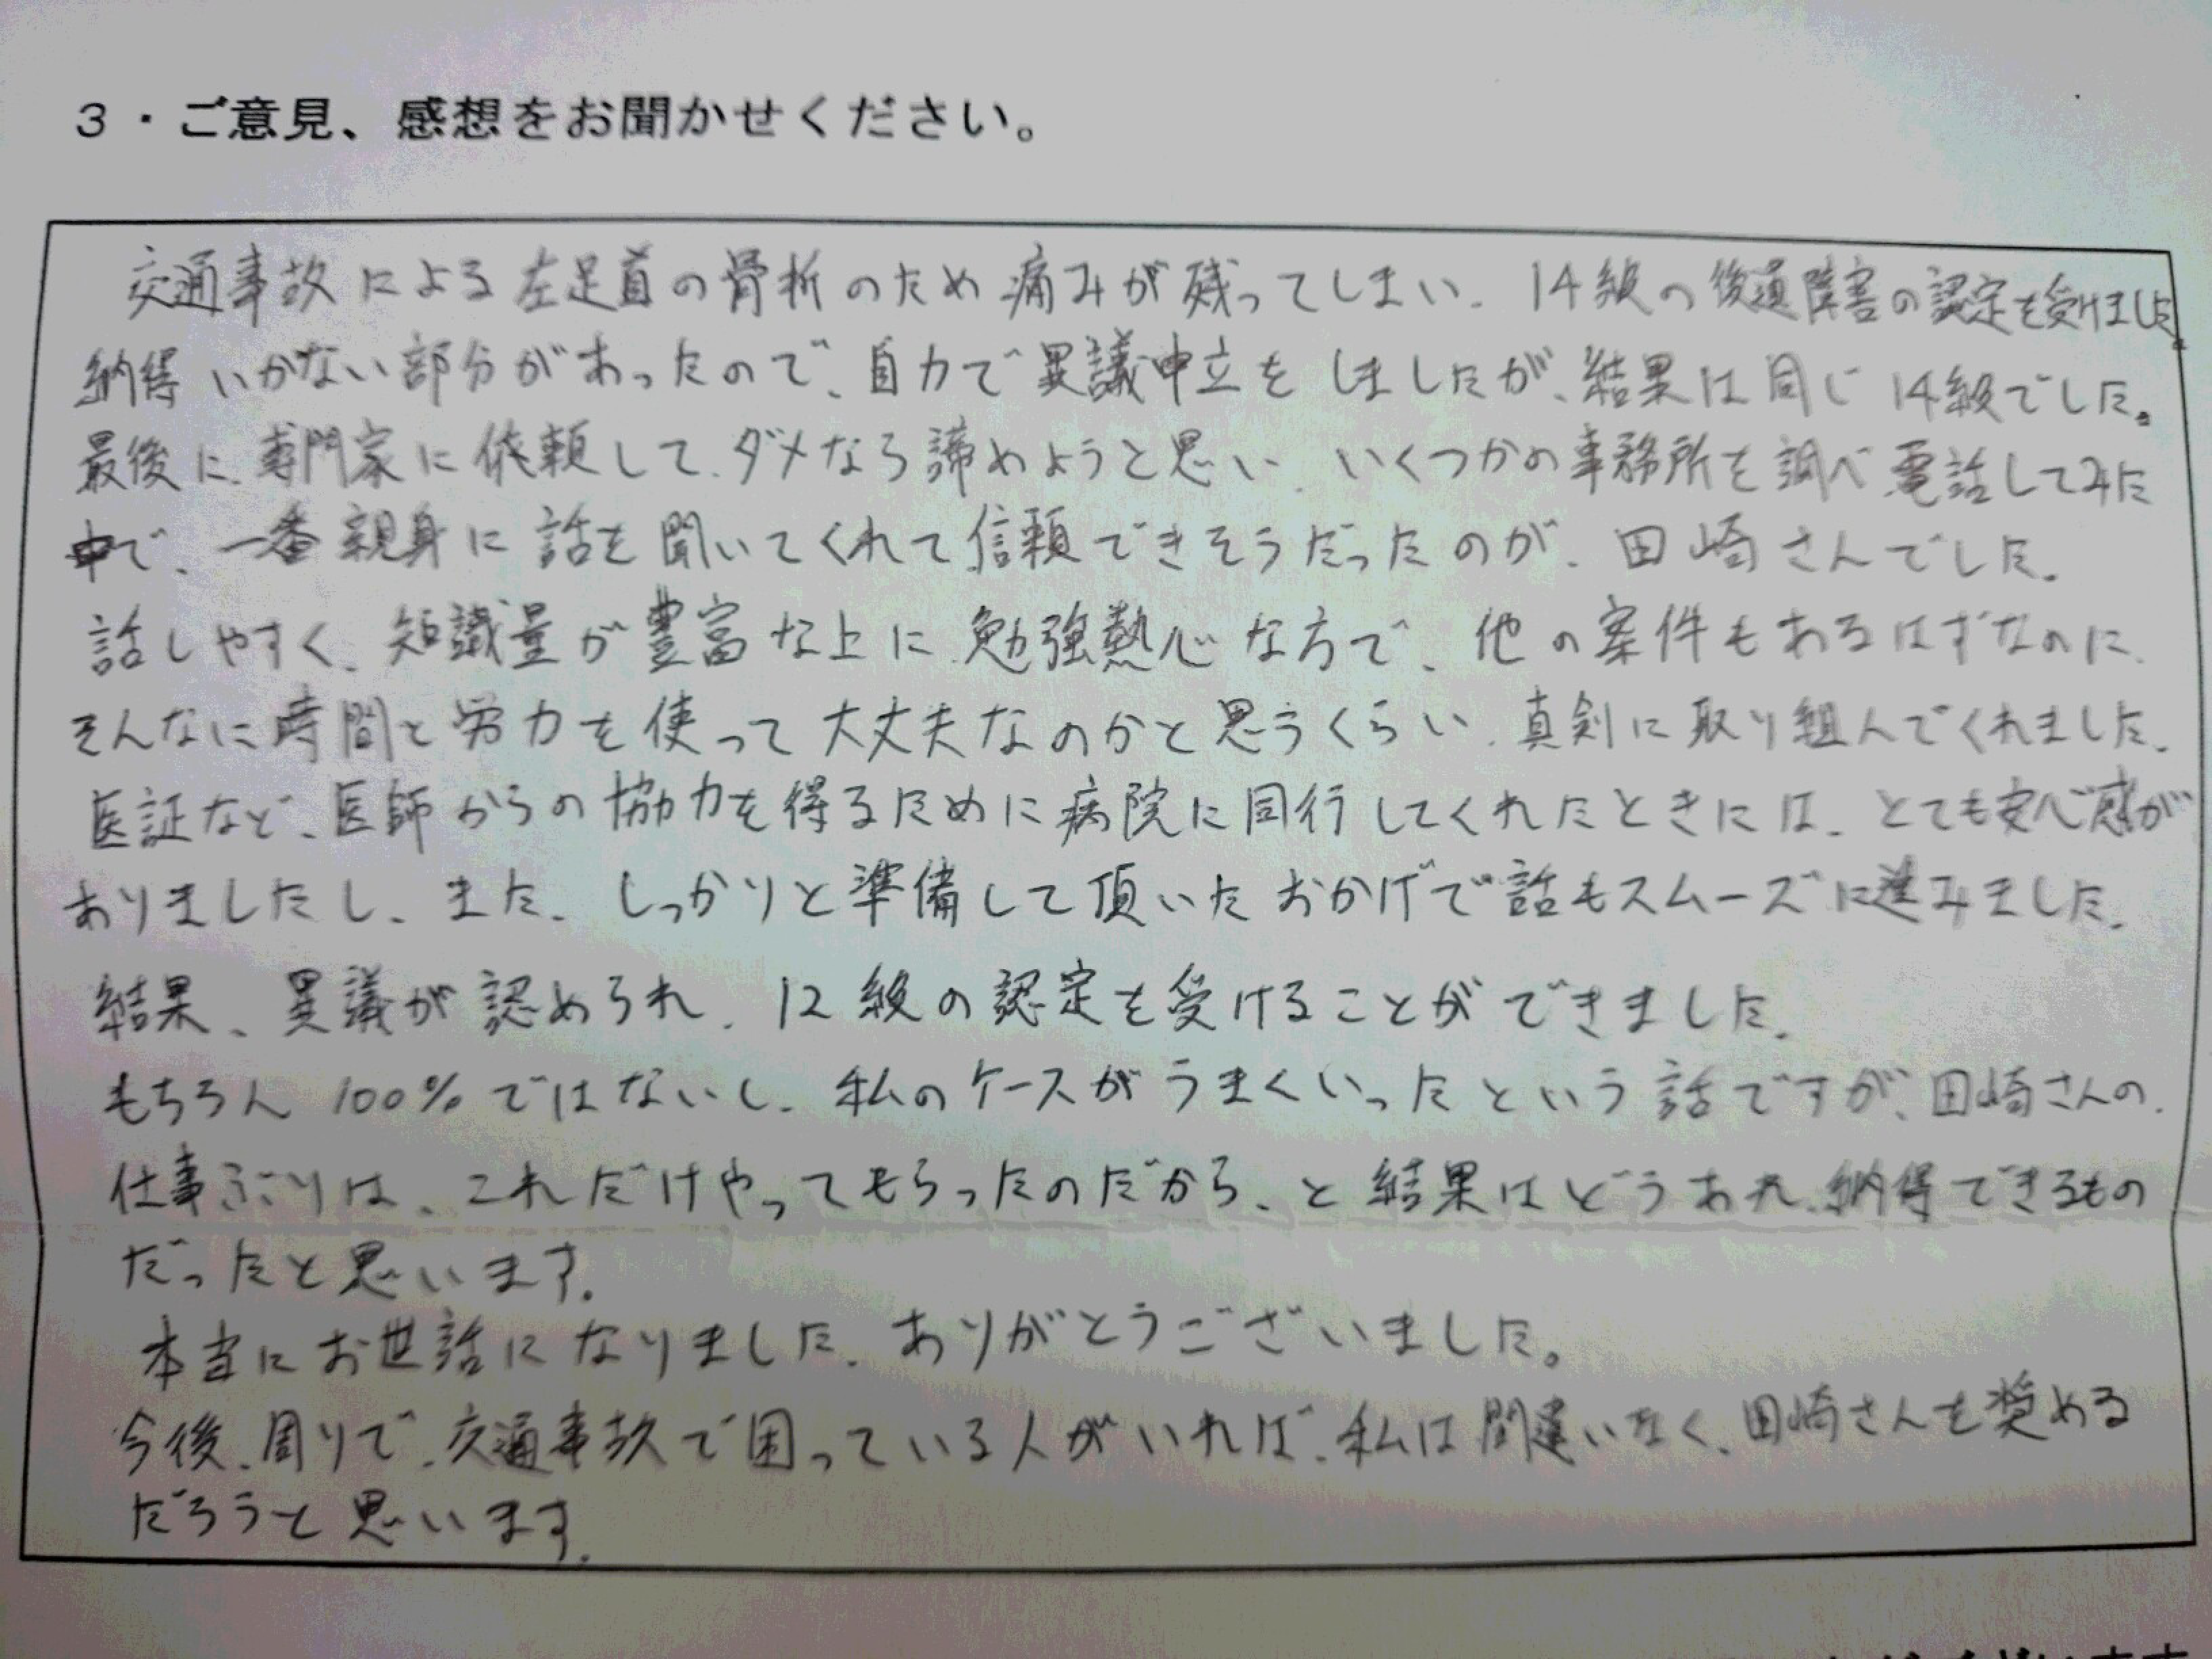 3・ご意見、感想をお聞かせください。
交通事故による左足首の骨折のため痛みが残ってしまい、14級の後遺障害の認定を受けました。
納得いかない部分があったので、自力で異議申立をしましたが、結果は同じ14級でした。
最後に、専門家に依頼して、ダメなら諦めようと思い、いくつかの事務所を調べ電話してみた
中で、一番親身に話を聞いてくれて信頼できそうだったのが、田崎さんでした。
話しやすく、知識量が豊富な上に、勉強熱心な方で、他の案件もあるはずなのに、
そんなに時間と労力を使って大丈夫なのかと思うくらい、真剣に取り組んでくれました。
医証など、医師からの協力を得るために病院に同行してくれたときには、とても安心感が
ありましたし、また、しっかりと準備して頂いたおかげで話もスムーズに進みました。
結果、異議が認められ、12級の認定を受けることができました。
もちろん100%ではないし、私のケースがうまくいったという話ですが、田崎さんの、
仕事ぶりは、これだけやってもらったのだから、と結果はどうあれ、納得できるもの
だったと思います。
本当にお世話になりました。ありがとうございました。
今後、周りで、交通事故で困っている人がいれば、私は間違いなく、田崎さんを奨める
だろうと思います。